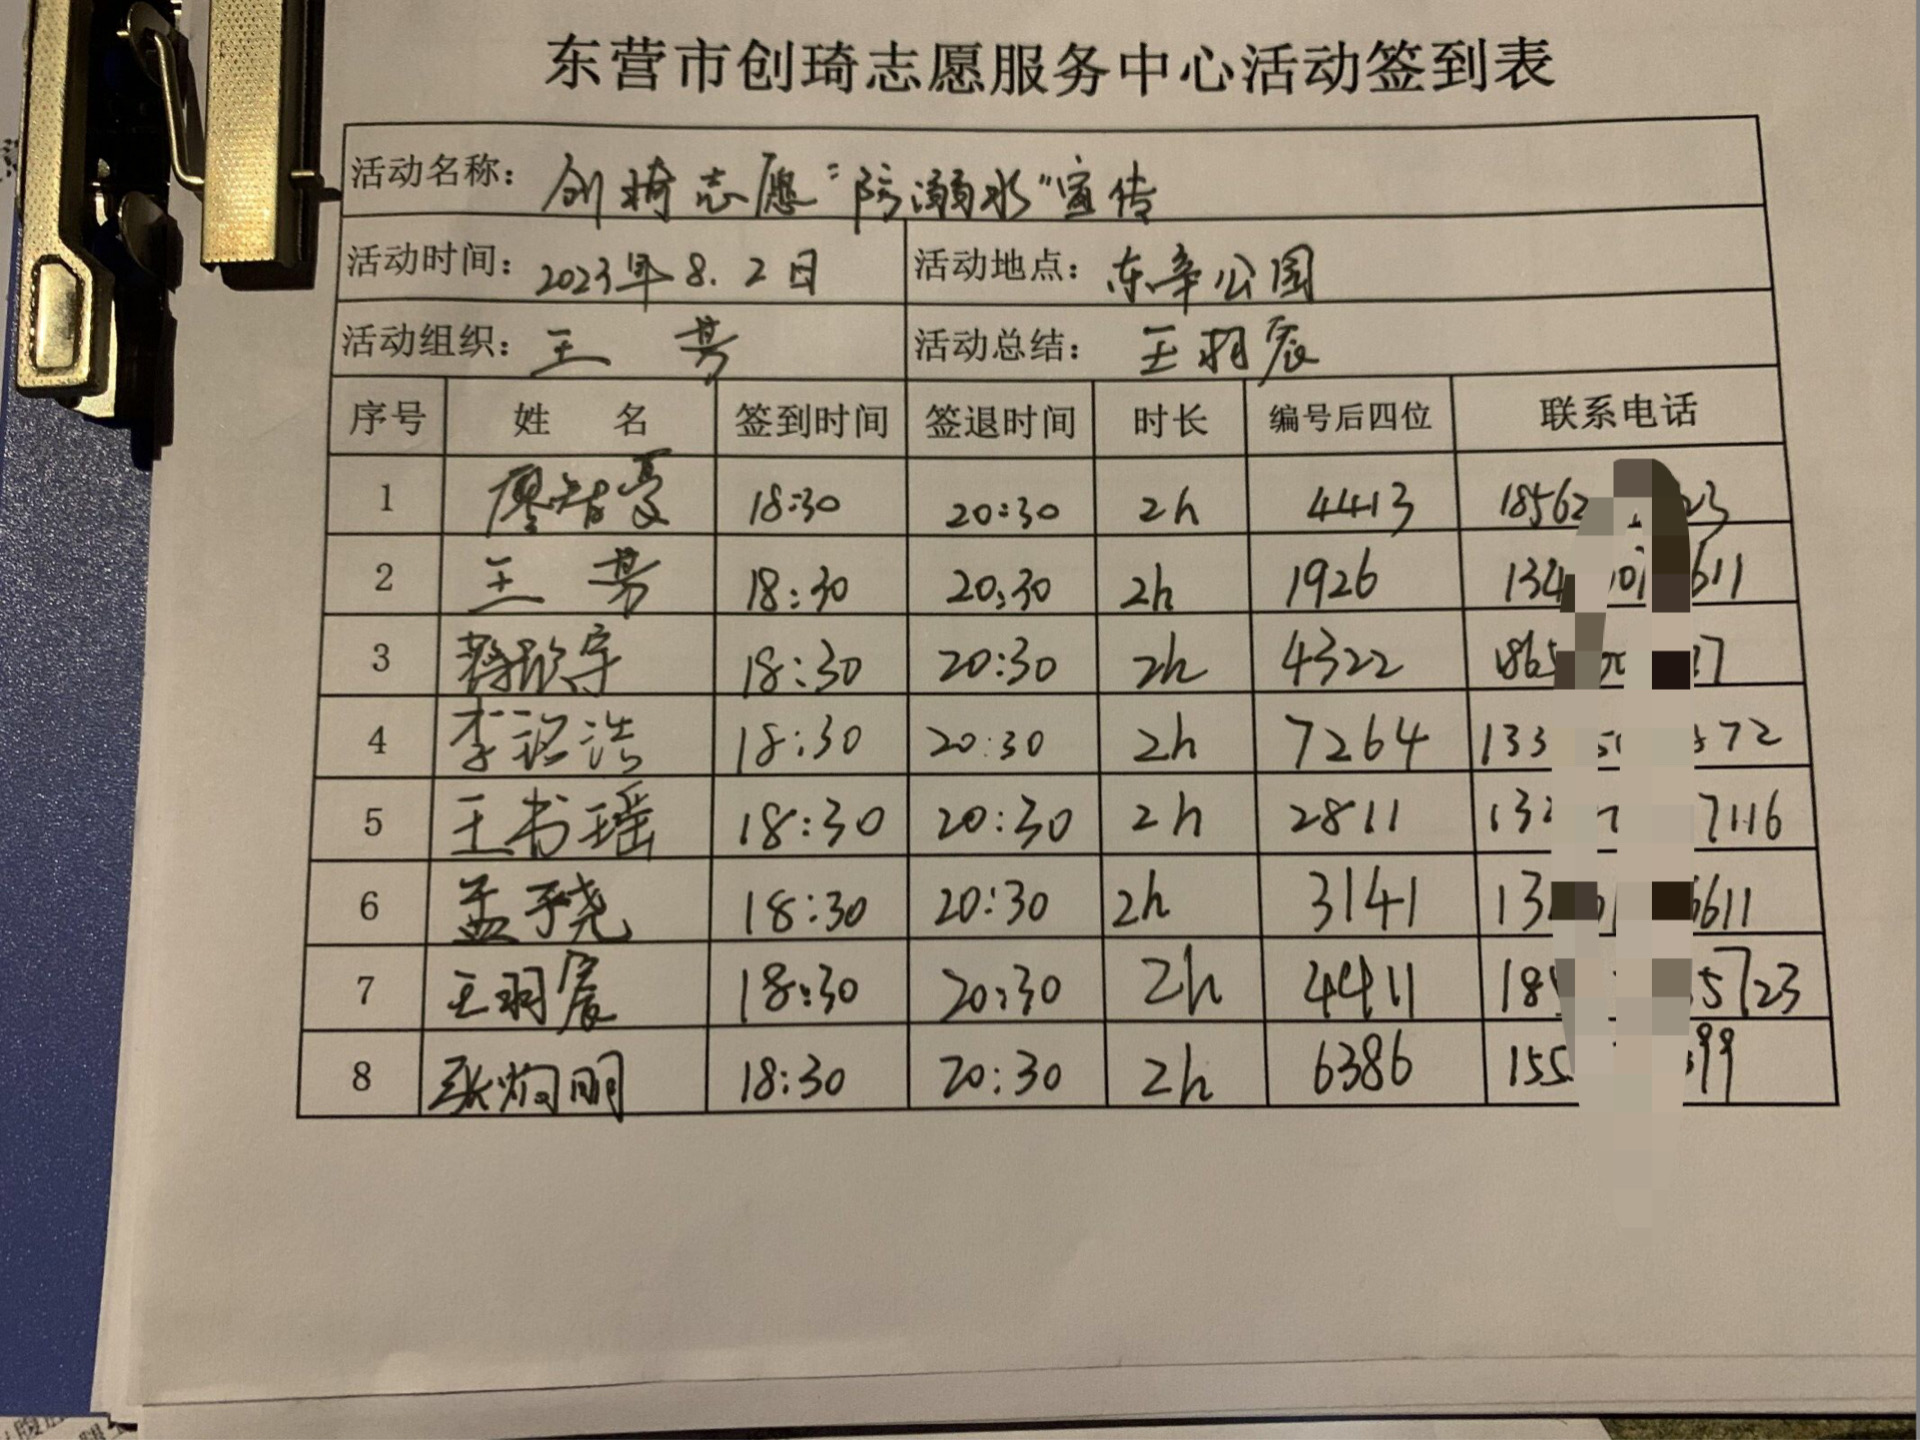 东营市创琦志愿服务中心活动签到表
活动名称：创琦志愿“防溺水”宣传
活动时间：2023年8.2日 活动地点：东辛公园
活动组织：王 芳 活动总结：王羽宸
序号 姓 名 签到时间 签退时间 时长 编号后四位 联系电话
1 廖智豪 18:30 20:30 2h 4413 18562 23
2 王 芳 18:30 20:30 2h 1926 134 611
3 18:30 20:30 2h 4322 1865 7
4 李诏浩 18:30 20:30 2h 7264 133 72
5 王书瑶 18:30 20:30 2h 2811 132 7116
6 孟子尧 18:30 20:30 2h 3141 13 6611
7 王羽宸 18:30 20:30 2h 4411 18 5723
8 张炳明 18:30 20:30 2h 6386 155 99